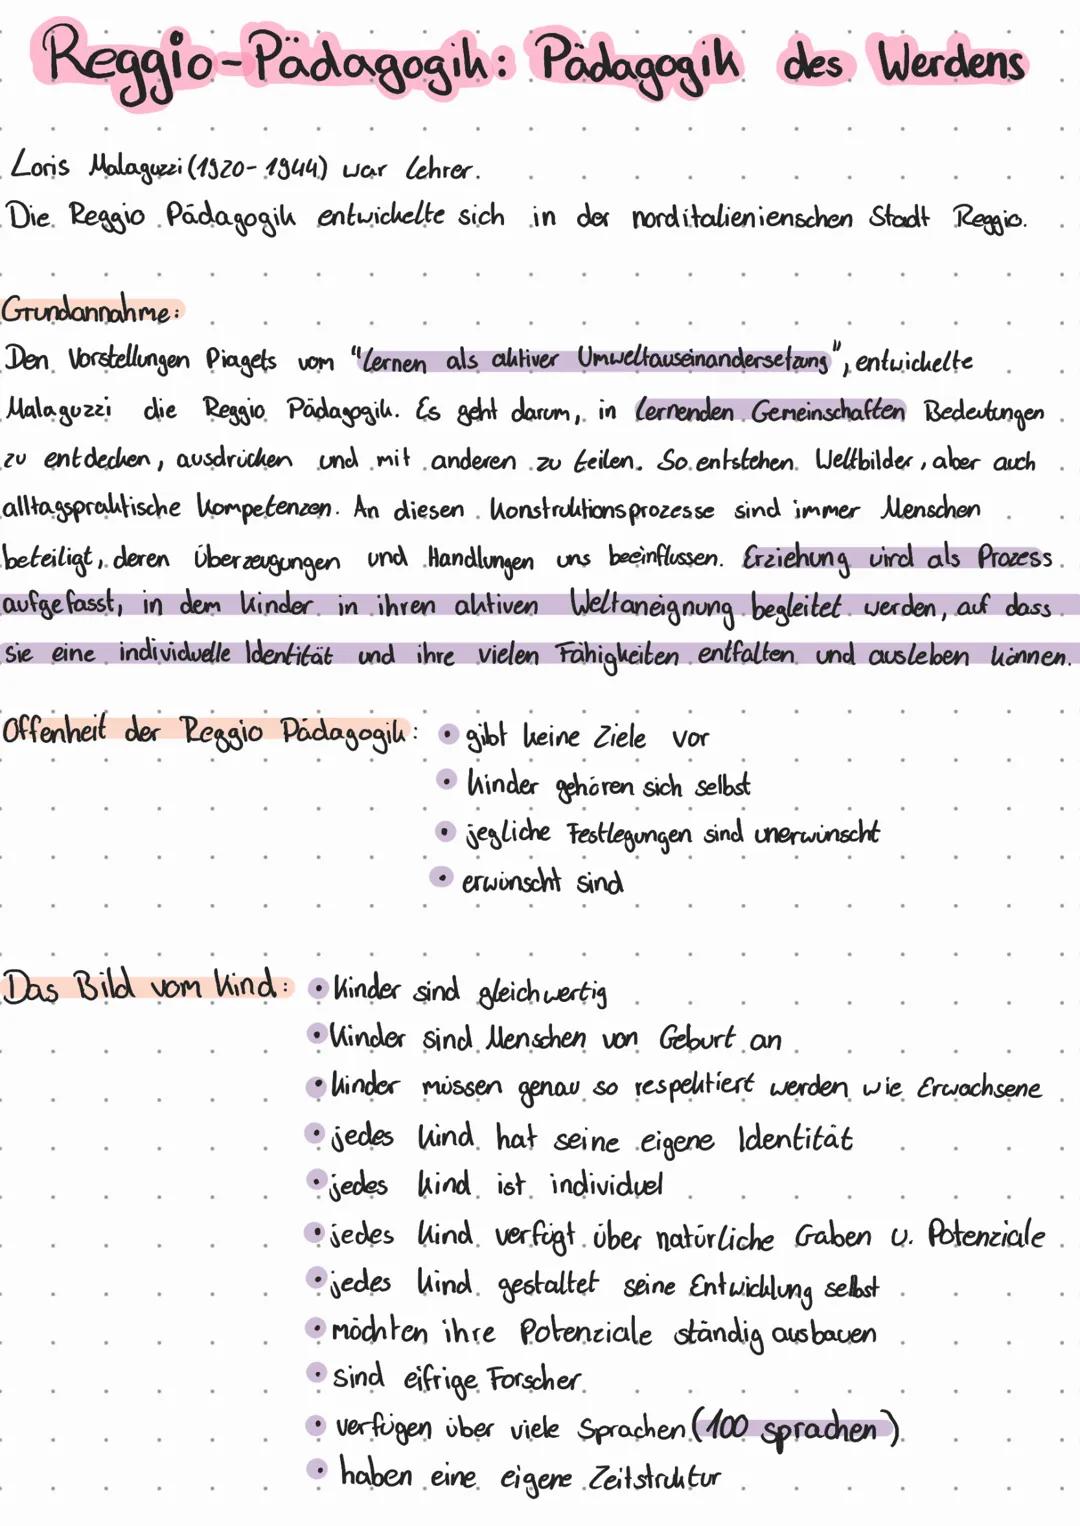 Reggio-Pädagogik: Pädagogik des Werdens
Loris Malaguzzi (1920-1944) war Lehrer.
Die Reggio Pädagogik entwickelte sich in der norditalienienschen Stadt Reggio.
Grundannahme:
Den Vorstellungen Piagets vom "Lernen als aktiver Umweltauseinandersetzung", entwickelte
Malaguzzi die Reggio Pädagogik. Es geht darum, in lernenden Gemeinschaften Bedeutungen
zu entdecken, ausdrücken und mit anderen zu teilen. So entstehen Weltbilder, aber auch
alltagspraktische Kompetenzen. An diesen Konstruktionsprozesse sind immer Menschen
beteiligt, deren Überzeugungen und Handlungen uns beeinflussen. Erziehung wird als Prozess
aufgefasst, in dem Kinder in ihren aktiven Weltaneignung begleitet werden, auf dass
sie eine individuelle Identität und ihre vielen Fähigkeiten entfalten und ausleben können.
Offenheit der Reggio Pädagogik: • gibt keine Ziele vor
• Kinder gehören sich selbst
• jegliche Festlegungen sind unerwünscht
• erwünscht sind
Das Bild vom Kind: • Kinder sind gleichwertig
• Kinder sind Menschen von Geburt an
• Kinder müssen genau so respektiert werden wie Erwachsene
• jedes Kind hat seine eigene Identität
• jedes Kind ist individuel
• jedes Kind verfügt über natürliche Gaben u. Potenziale
• jedes Kind gestaltet seine Entwicklung selbst
• möchten ihre Potenziale ständig ausbauen
• sind eifrige Forscher
• verfügen über viele Sprachen (100 sprachen)
• haben eine eigene Zeitstruktur